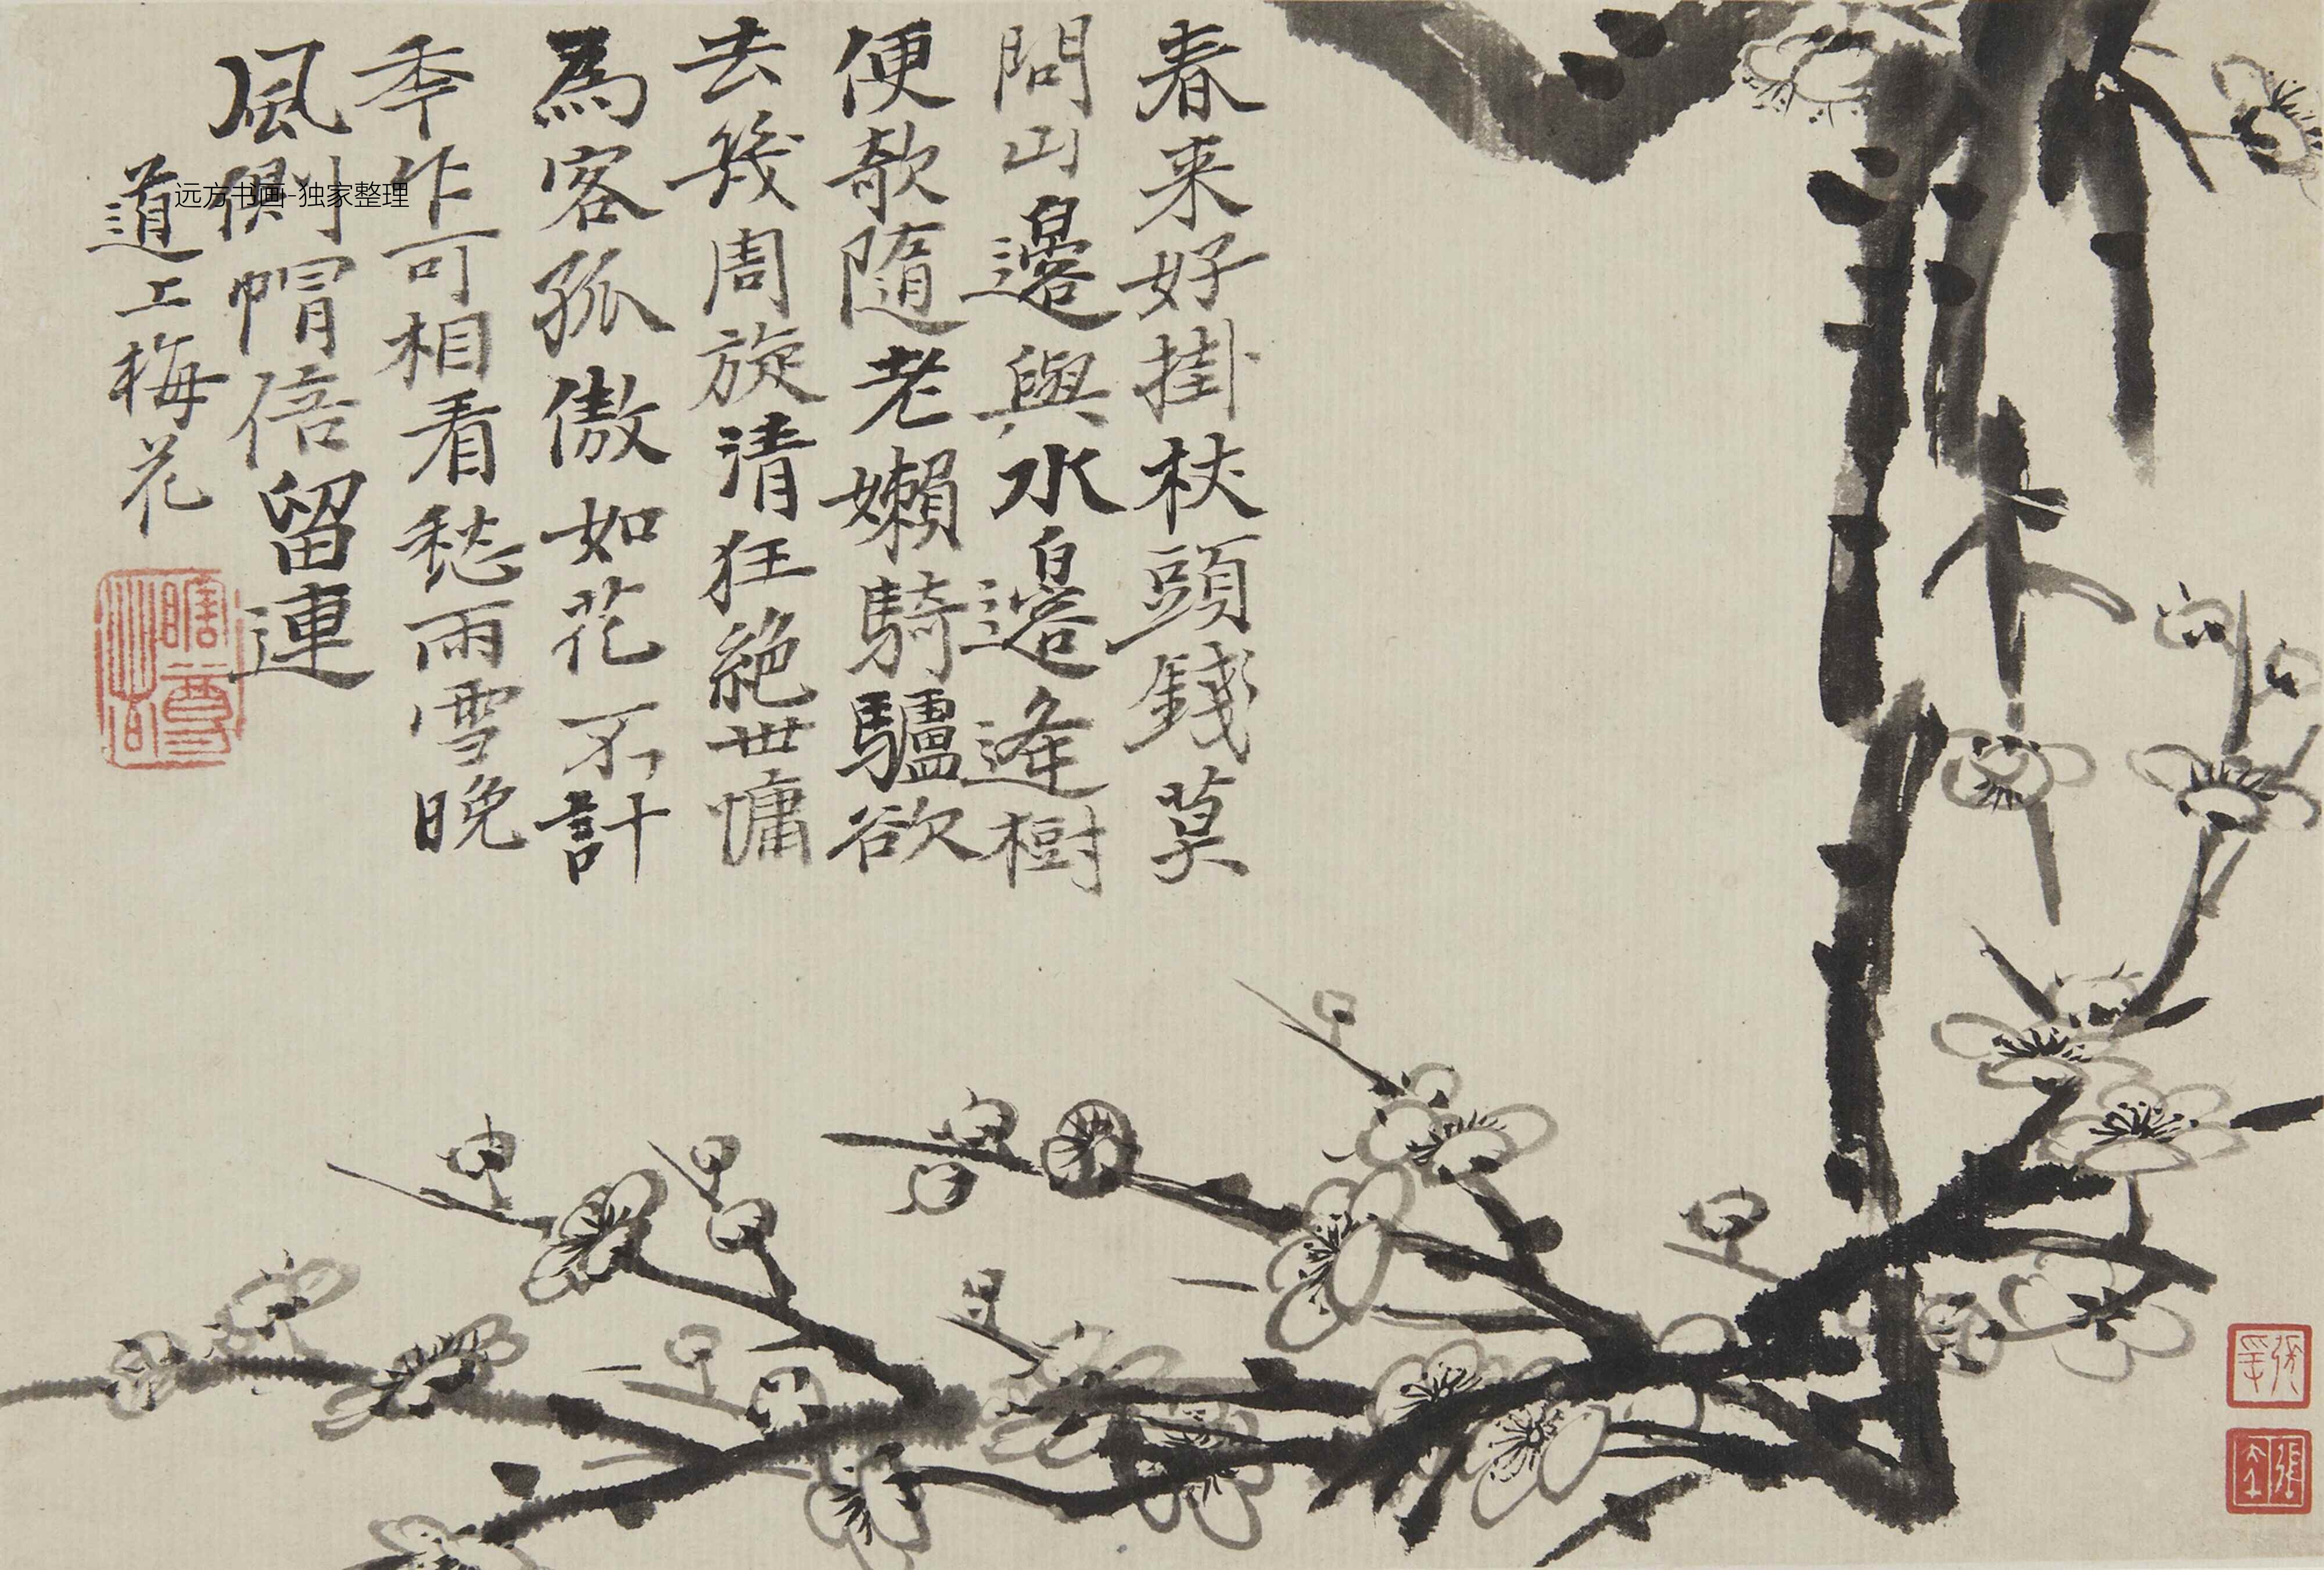 春来好掛杖頭錢莫
問山邊與水邊逢樹
便欹隨老嬾騎驢欲
去幾周旋清狂絕世慵
為客孤傲如花不計
季乍可相看愁雨雪晚
風側帽倍留連
道上梅花
瞎尊
远方书画-独家整理